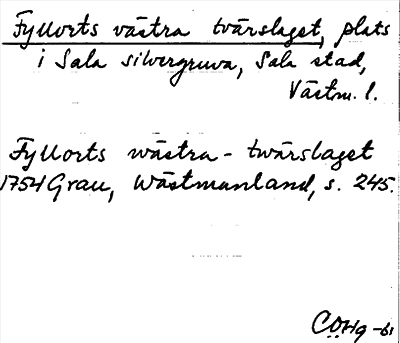 Fyllorts västra tvärslaget, plats
i Sala silvergruva, Sala stad,
Västm. l.
Fyllorts wästra - twärslaget
1754 Grau, Wästmanland, s. 245.
COHg -61